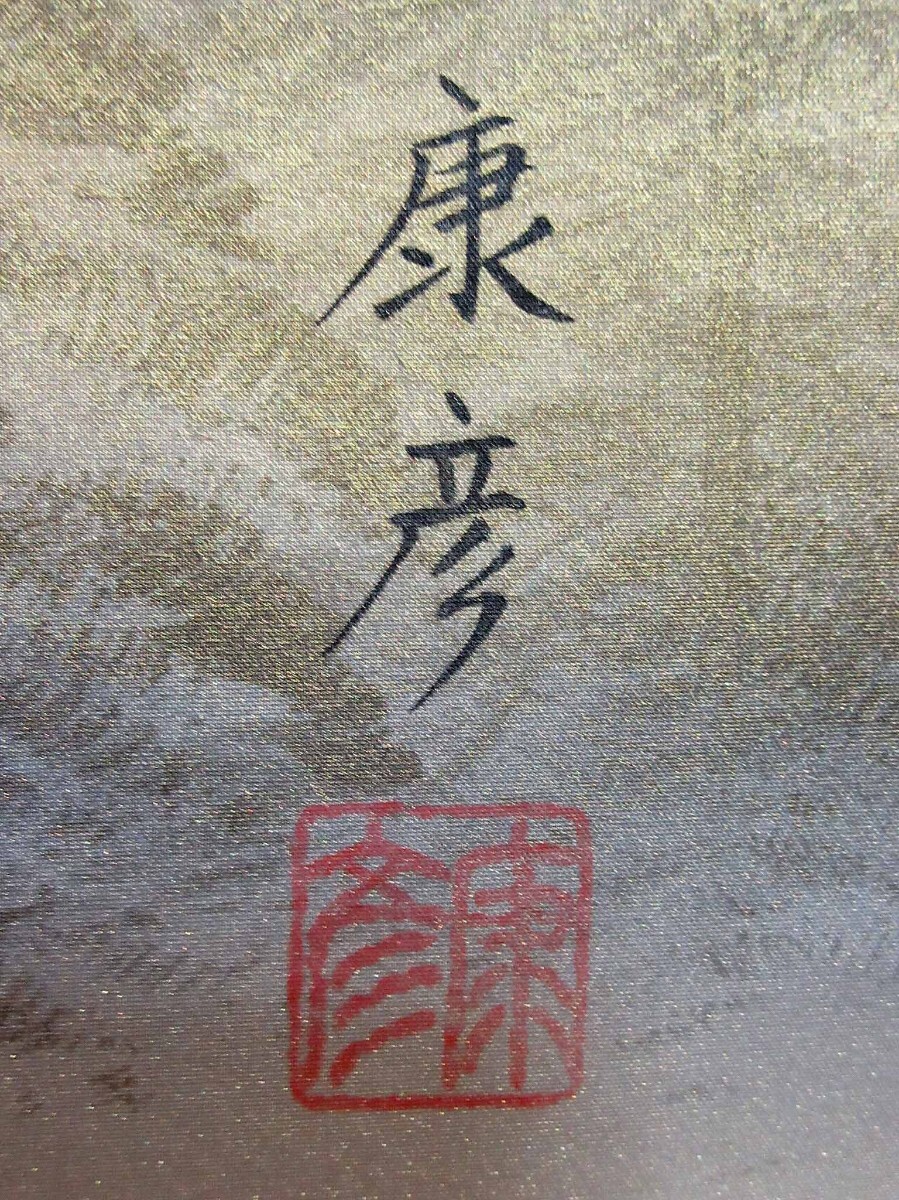 康彦
康彦